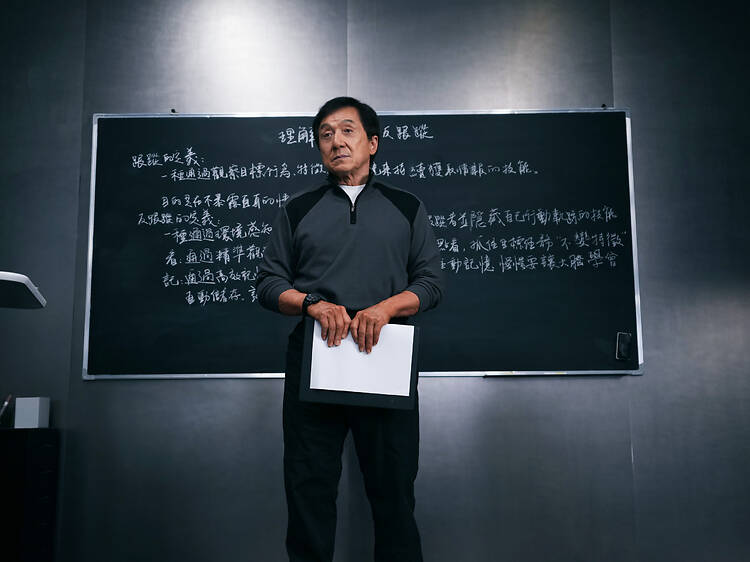 理解 反跟蹤
跟蹤的定義：
一種通過觀察目標行為、特徵 來持續獲取情報的技能。
目的是在不暴露自身的情
反跟蹤的定義： 跟蹤者並隱藏自己行動軌跡的技能
一種通過環境感知 點看，抓住目標任務“不變特徵”
看：通過精準觀 主動記憶 慢慢要讓大腦 學會
記：通過高效記
自動儲存。